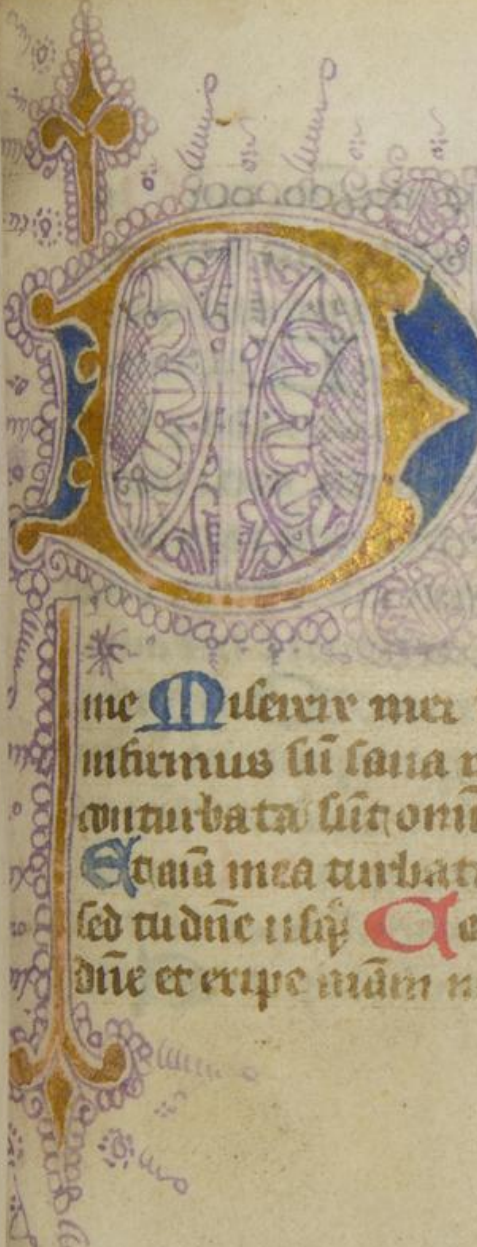 D
me Miserere mei
infirmus sū sana
conturbata sūt om
Et aīa mea turbat
sed tu dn̄e usq̄
dn̄e et eripe aīam